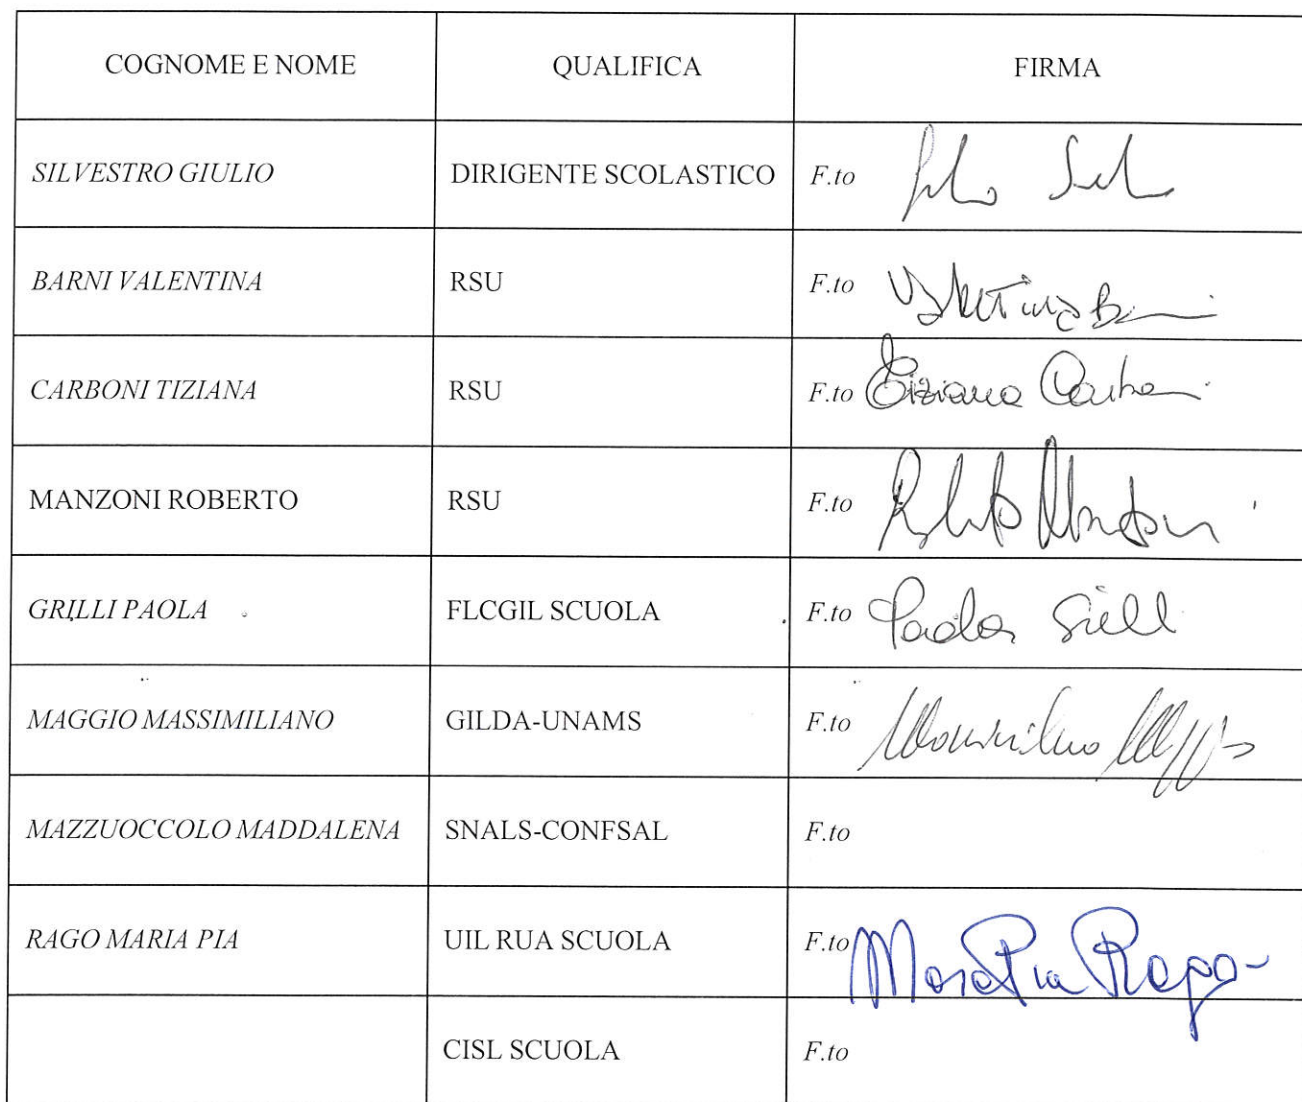 COGNOME E NOME QUALIFICA FIRMA
SILVESTRO GIULIO DIRIGENTE SCOLASTICO F.to
BARNI VALENTINA RSU F.to Valentina B
CARBONI TIZIANA RSU F.to Tiziana Carboni
MANZONI ROBERTO RSU F.to Roberto Manzoni
GRILLI PAOLA FLCGIL SCUOLA F.to Paola Grilli
MAGGIO MASSIMILIANO GILDA-UNAMS F.to Massimiliano Maggio
MAZZUOCCOLO MADDALENA SNALS-CONFSAL F.to
RAGO MARIA PIA UIL RUA SCUOLA F.to Maria Pia Rago
CISL SCUOLA F.to